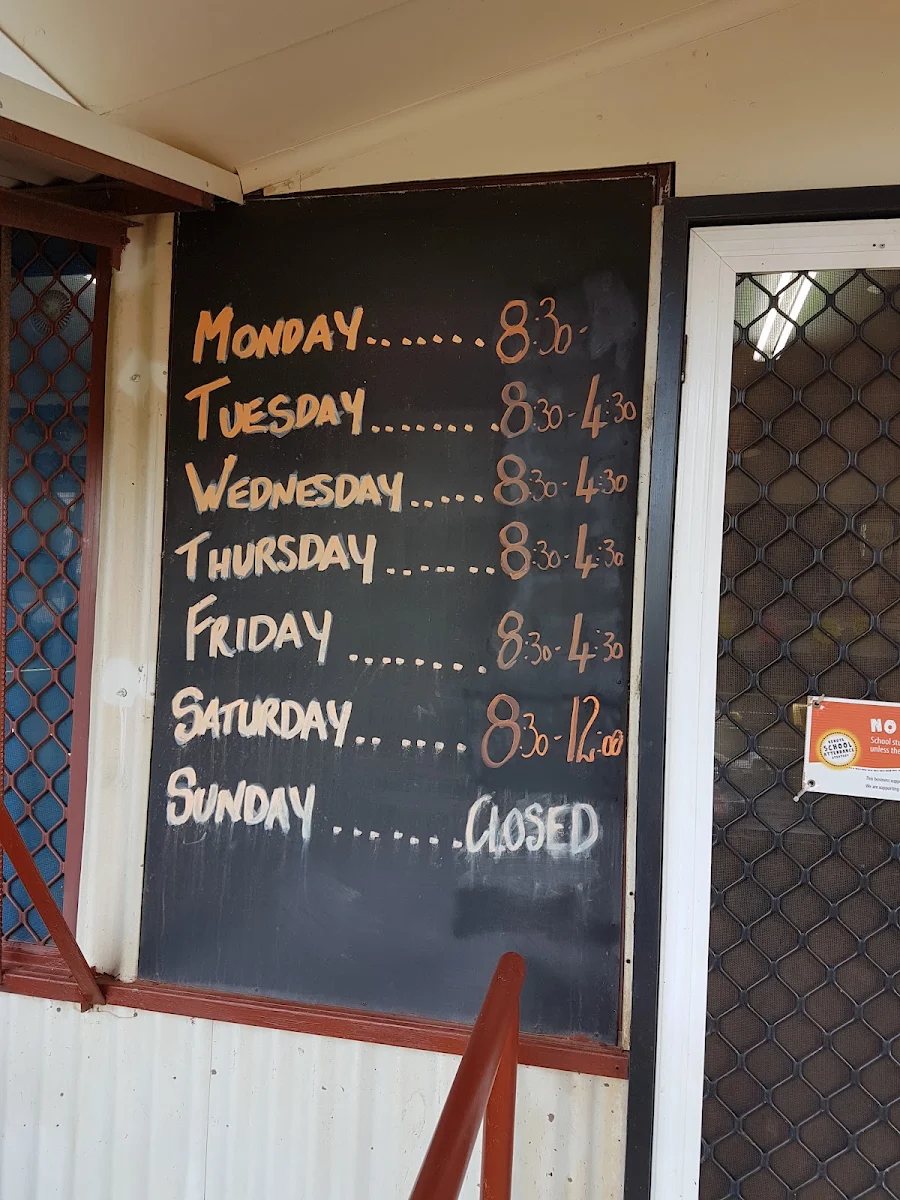 MONDAY....... 8:30-
TUESDAY....... .8:30-4:30
WEDNESDAY..... 8:30-4:30
THURSDAY....... 8:30-4:30
FRIDAY ....... 8:30-4:30
SATURDAY....... 8:30-12:00
SUNDAY .......CLOSED
NO
School stu
unless the
SCHOOL
ATTENDANCE
STRATEGY
We are supporting